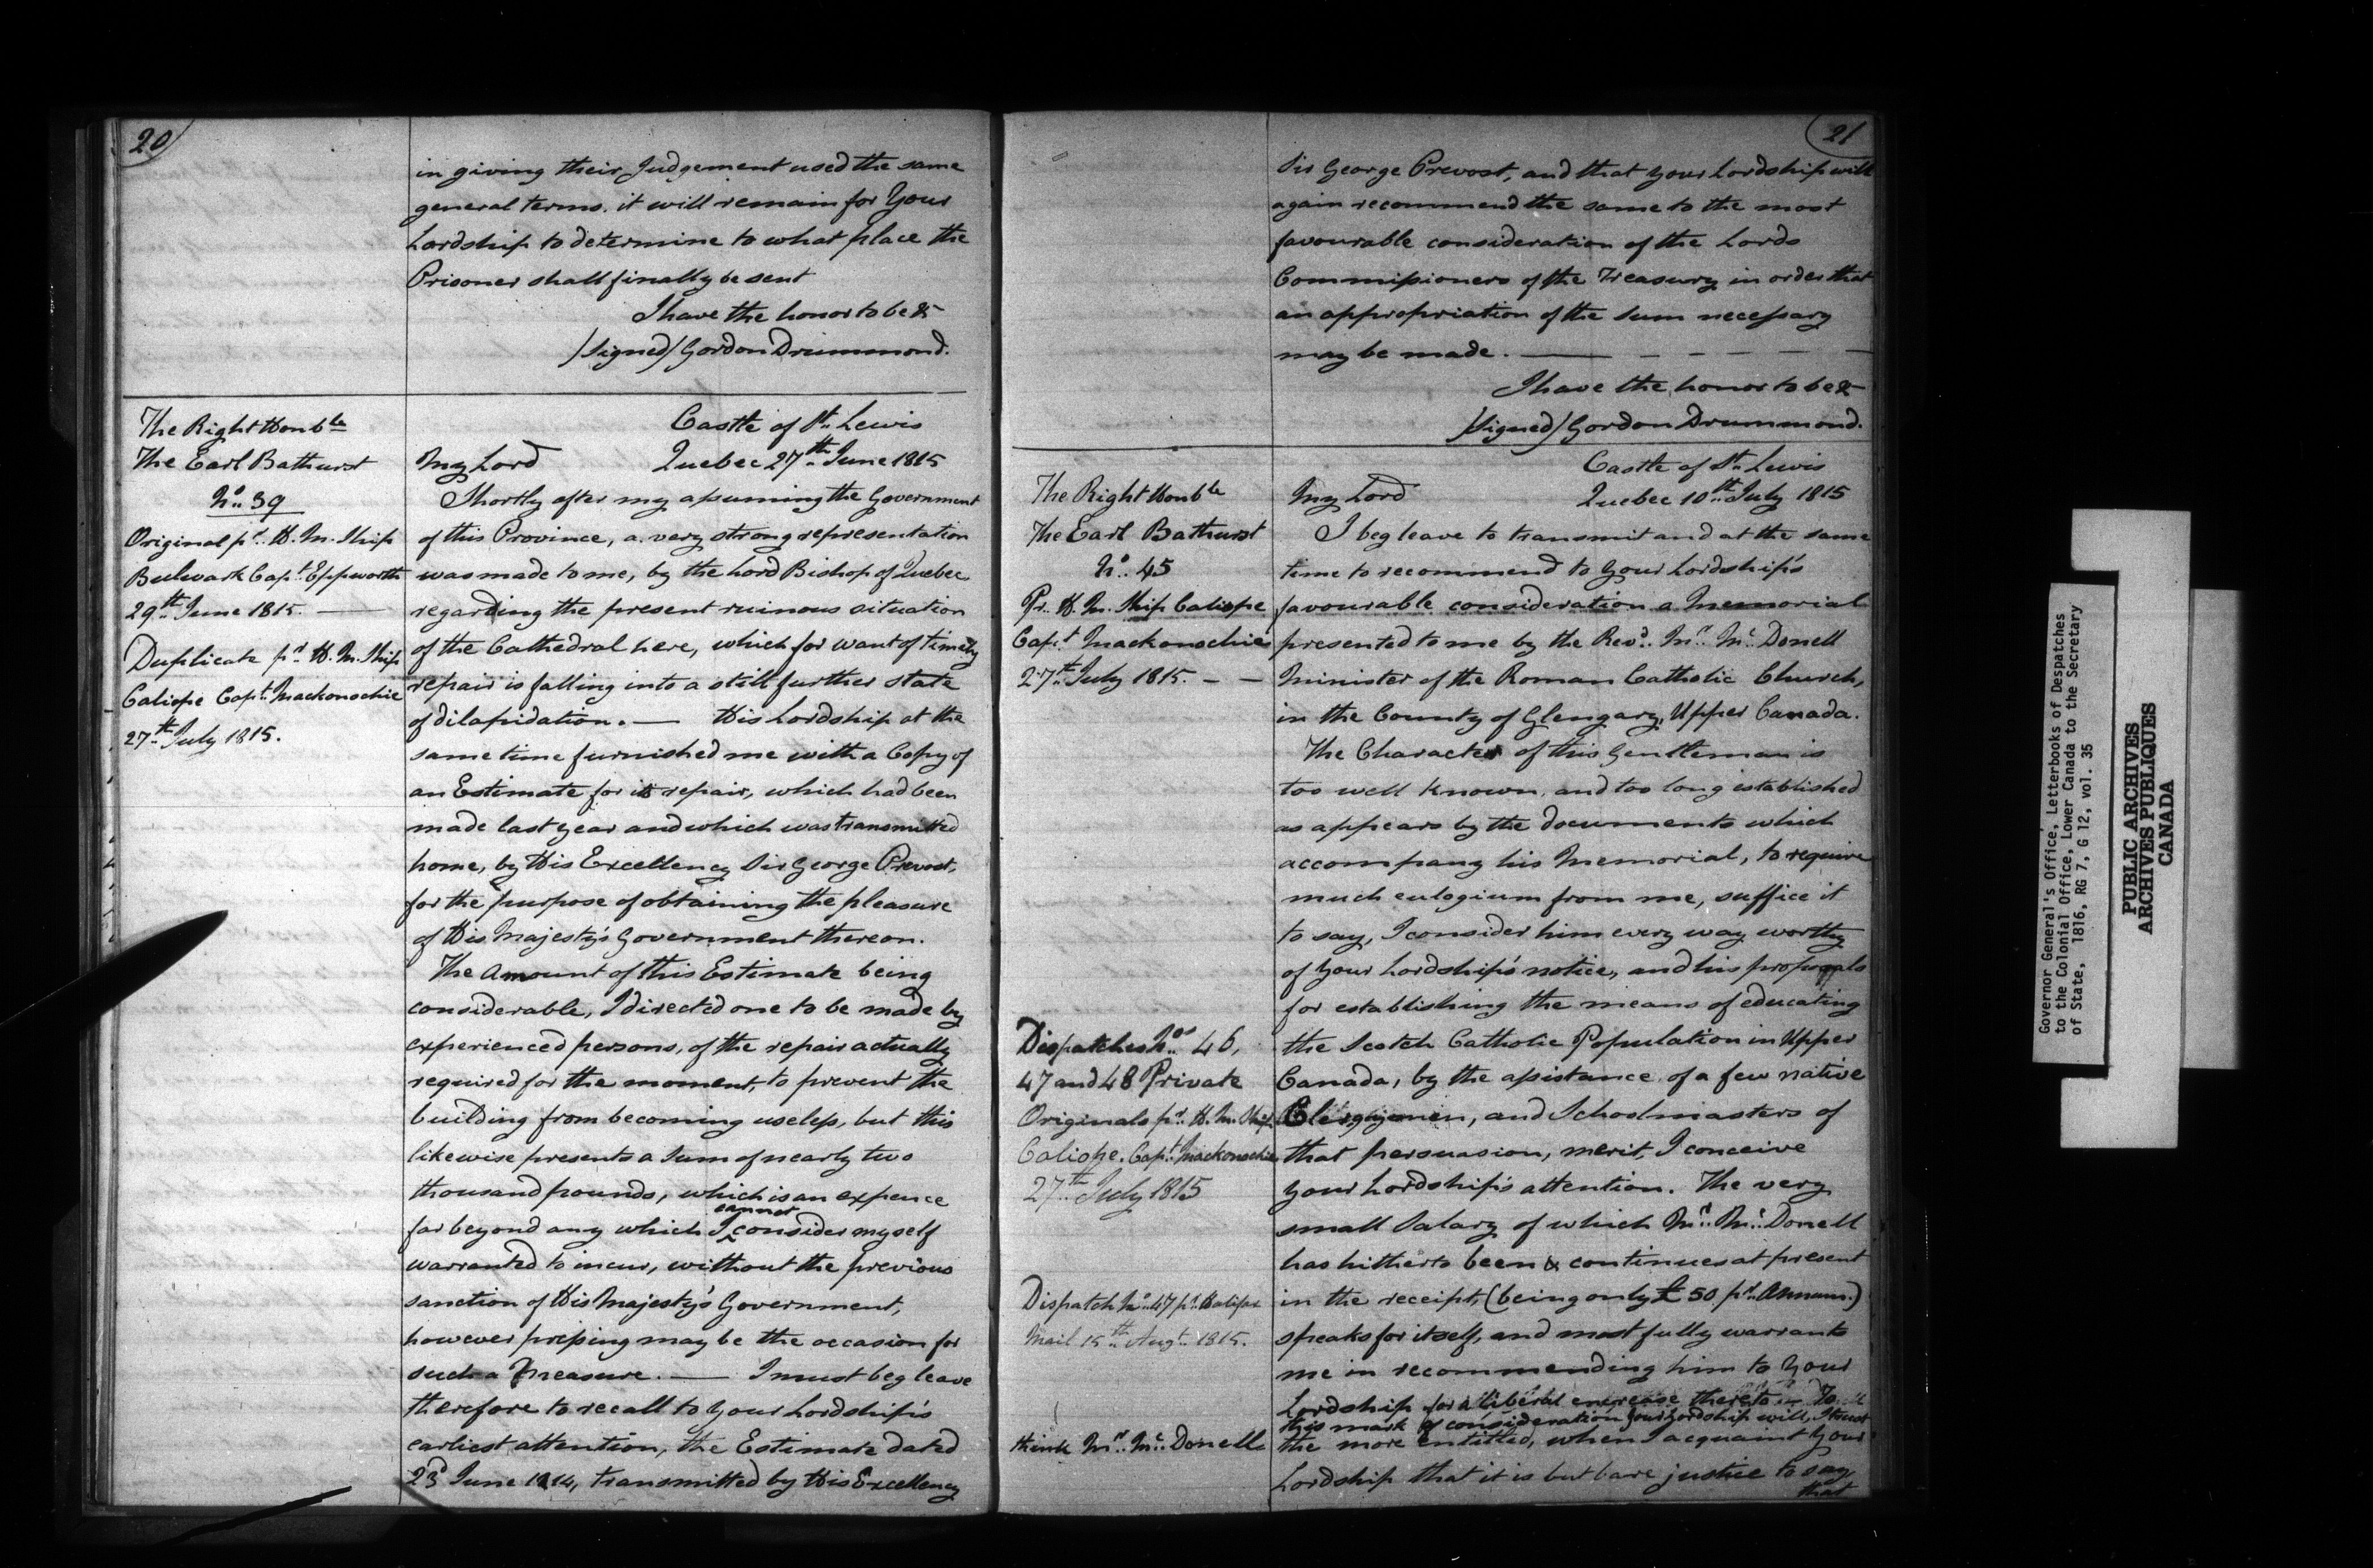 20
in giving their Judgement used the same
general terms. it will remain for Your
Lordship to determine to what place the
Prisoner shall finally be sent
I have the honor to be &
/Signed/ Gordon Drummond.
The Right Honble
The Earl Bathurst
No. 39
Original pr. H. M. Ship
Bulwark Capt. Eppworth
29th June 1815.
Duplicate pr. H. M. Ship
Caliope Capt. Mackonochie
27th July 1815.
Castle of St. Lewis
My Lord Quebec 27th June 1815
Shortly after my assuming the Government
of this Province, a very strong representation
was made to me, by the Lord Bishop of Quebec
regarding the present ruinous situation
of the Cathedral here, which for want of timely
repair is falling into a still further state
of dilapidation. — His Lordship at the
same time furnished me with a Copy of
an Estimate for its repair, which had been
made last year and which was transmitted
home, by His Excellency Sir George Prevost,
for the purpose of obtaining the pleasure
of His Majesty's Government thereon.
The Amount of this Estimate being
considerable, I directed one to be made by
experienced persons, of the repair actually
required for the moment, to prevent the
building from becoming useless, but this
likewise presents a Sum of nearly two
thousand pounds, which is an expence
far beyond any which I cannot consider myself
warranted to incur, without the previous
sanction of His Majesty's Government,
however pressing may be the occasion for
such a Measure. — I must beg leave
therefore to recall to Your Lordship's
earliest attention, the Estimate dated
23d June 1814, transmitted by His Excellency
21
Sir George Prevost, and that your Lordship will
again recommend the same to the most
favourable consideration of the Lords
Commissioners of the Treasury in order that
an appropriation of the Sum necessary
may be made. — — — — —
I have the honor to be &
/Signed/ Gordon Drummond.
The Right Honble
The Earl Bathurst
No. 45
Pr. H. M. Ship Caliope
Capt Mackonochie
27th July 1815. — —
Castle of St. Lewis
My Lord Quebec 10th July 1815
I beg leave to transmit and at the same
time to recommend to Your Lordship's
favourable consideration a Memorial
presented to me by the Revd. Mr. Mc. Donell
Minister of the Roman Catholic Church,
in the County of Glengary, Upper Canada.
The Character of this Gentleman is
too well known, and too long established
as appears by the documents which
accompany his Memorial, to require
much eulogium from me, suffice it
to say, I consider him every way worthy
of Your Lordship's notice, and his proposals
for establishing the means of educating
the Scotch Catholic Population in Upper
Canada, by the assistance of a few native
Clergymen, and Schoolmasters of
that persuasion, merit, I conceive
your Lordship's attention. The very
small Salary of which Mr. Mc. Donell
has hitherto been & continues at present
in the receipt, (being only £50 pr. Annum.)
speaks for itself, and most fully warrants
me in recommending him to Your
Lordship for a liberal encrease thereto — To
this mark of consideration Your Lordship will, I trust
think Mr. Mc. Donell the more entitled, when I acquaint Your
Lordship that it is but bare justice to say,
that
Dispatches Nos. 46,
47 and 48 Private
Originals pr. H. M. Ship
Caliope. Capt. Mackonochie
27th July 1815
Dispatch No. 47 pr. Halifax
Mail 15th Augt. 1815.
Governor General's Office, Letterbooks of Despatches
to the Colonial Office, Lower Canada to the Secretary
of State, 1816, RG 7, G 12, vol. 35
PUBLIC ARCHIVES
ARCHIVES PUBLIQUES
CANADA